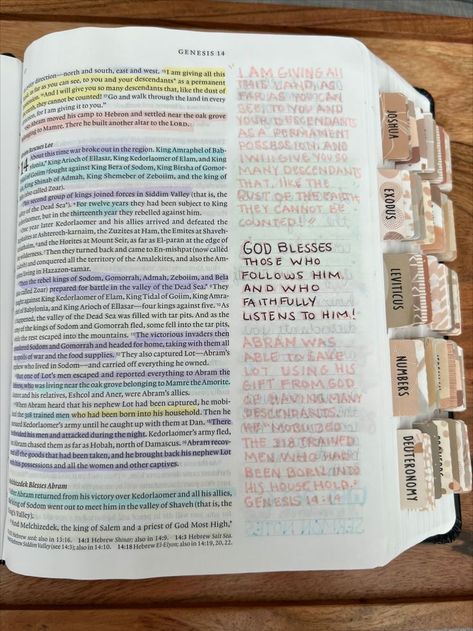 GENESIS 14
direction—north and south, east and west. "I am giving all this
as far as you can see, to you and your descendants as a permanent
"And I will give you so many descendants that, like the dust of
they cannot be counted! Go and walk through the land in every
for I am giving it to you."
Abram moved his camp to Hebron and settled near the oak grove
belonging to Mamre. There he built another altar to the LORD.
Rescues Lot
14 About this time war broke out in the region. King Amraphel of Bab-
King Arioch of Ellasar, King Kedorlaomer of Elam, and King
of Goiim fought against King Bera of Sodom, King Birsha of Gomor-
King Shinab of Admah, King Shemeber of Zeboiim, and the king of
also called Zoar).
This second group of kings joined forces in Siddim Valley (that is, the
valley of the Dead Sea). For twelve years they had been subject to King
Kedorlaomer, but in the thirteenth year they rebelled against him.
One year later Kedorlaomer and his allies arrived and defeated the
Rephaites at Ashteroth-karnaim, the Zuzites at Ham, the Emites at Shaveh-
and the Horites at Mount Seir, as far as El-paran at the edge of
wilderness. Then they turned back and came to En-mishpat (now called
and conquered all the territory of the Amalekites, and also the
living in Hazazon-tamar.
Then the rebel kings of Sodom, Gomorrah, Admah, Zeboiim, and Bela
called Zoar) prepared for battle in the valley of the Dead Sea. They
fought against King Kedorlaomer of Elam, King Tidal of Goiim, King Amra-
of Babylonia, and King Arioch of Ellasar—four kings against five. As
happened, the valley of the Dead Sea was filled with tar pits. And as the
army of the kings of Sodom and Gomorrah fled, some fell into the tar pits,
the rest escaped into the mountains. The victorious invaders then
Sodom and Gomorrah and headed for home, taking with them all
spoils of war and the food supplies. They also captured Lot—Abram's
nephew who lived in Sodom—and carried off everything he owned.
But one of Lot's men escaped and reported everything to Abram the
who was living near the oak grove belonging to Mamre the Amorite.
and his relatives, Eshcol and Aner, were Abram's allies.
When Abram heard that his nephew Lot had been captured, he mobi-
the 318 trained men who had been born into his household. Then he
Kedorlaomer's army until he caught up with them at Dan. There
divided his men and attacked during the night. Kedorlaomer's army fled,
Abram chased them as far as Hobah, north of Damascus. Abram recov-
all the goods that had been taken, and he brought back his nephew Lot
possessions and all the women and other captives.
Melchizedek Blesses Abram
After Abram returned from his victory over Kedorlaomer and all his allies,
king of Sodom went out to meet him in the valley of Shaveh (that is, the
King's Valley).
And Melchizedek, the king of Salem and a priest of God Most High,
Hebrew seed; also in 13:16. 14:1 Hebrew Shinar; also in 14:9. 14:3 Hebrew Salt Sea.
Siddim Valley (see 14:3); also in 14:10. 14:18 Hebrew El-Elyon; also in 14:19, 20, 22.
I AM GIVING ALL
THIS LAND, AS
FAR AS YOU CAN
SEE, TO YOU AND
YOUR DESCENDANTS
AS A PERMANENT
POSSESSION. AND
I WILL GIVE YOU SO
MANY DESCENDANTS
THAT, LIKE THE
DUST OF THE EARTH,
THEY CANNOT BE
COUNTED!
GOD BLESSES
THOSE WHO
FOLLOWS HIM
AND WHO
FAITHFULLY
LISTENS TO HIM!
ABRAM WAS
ABLE TO SAVE
LOT USING HIS
GIFT FROM GOD
OF HAVING MANY
DESCENDANTS.
HE "MOBILIZED
THE 318 TRAINED
MEN WHO HAD
BEEN BORN INTO
HIS HOUSEHOLD."
GENESIS 14:14
JOSHUA
EXODUS
LEVITICUS
NUMBERS
DEUTERONOMY